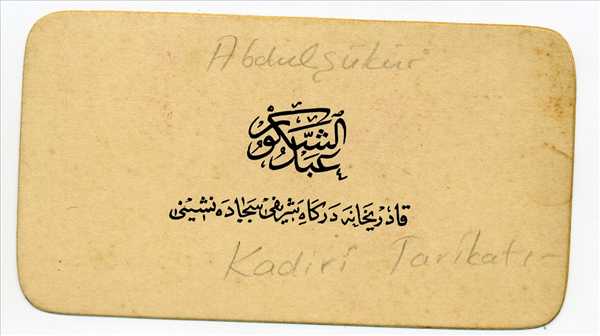 Abdulşükür
عبد الشكور
قادریخانه درکاه شریفی سجاده نشینی
Kadirî Tarikatı-